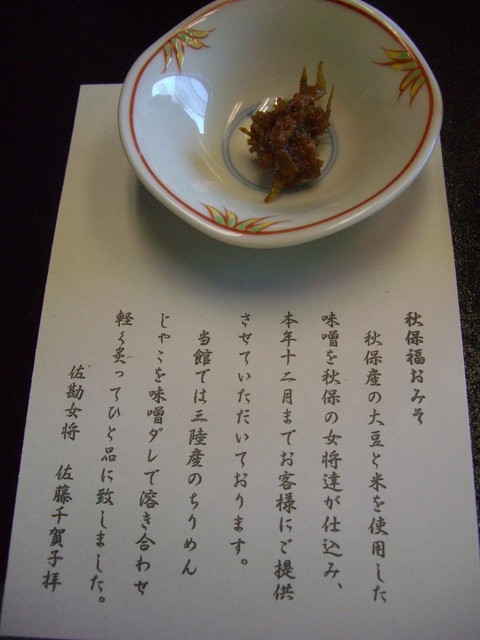 秋保福おみそ
秋保産の大豆と米を使用した
味噌を秋保の女将達が仕込み、
本年十二月までお客様にご提供
させていただいております。
当館では三陸産のちりめん
じゃこを味噌ダレで溶き合わせ
軽く炙ってひと品に致しました。
佐勘女将 佐藤千賀子拝